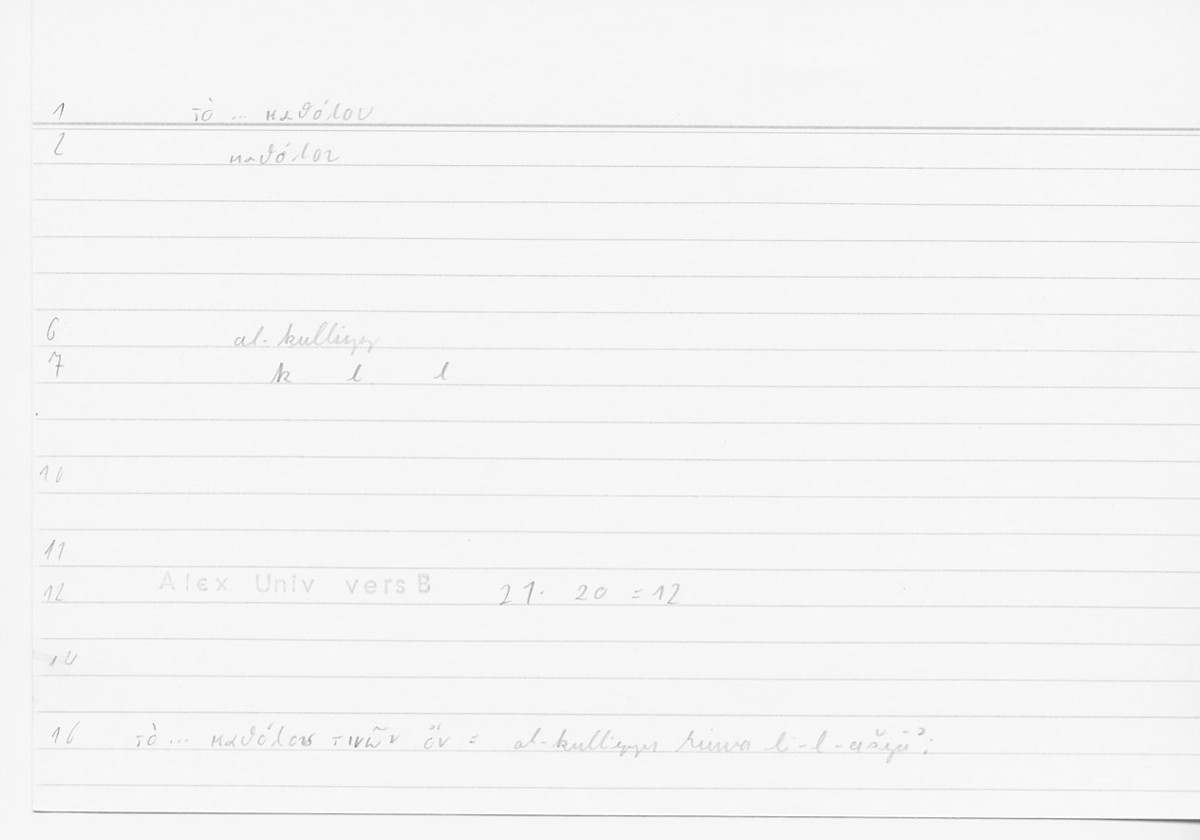 1 τὸ ... καθόλου
2 καθόλου
6 al-kulliyy
7 k l l
10
11
12 Alex Univ vers B 21. 20 = 12
14
16 τὸ ... καθόλου τινῶν ὄν = al-kulliyy li-l-ašyāʾ;